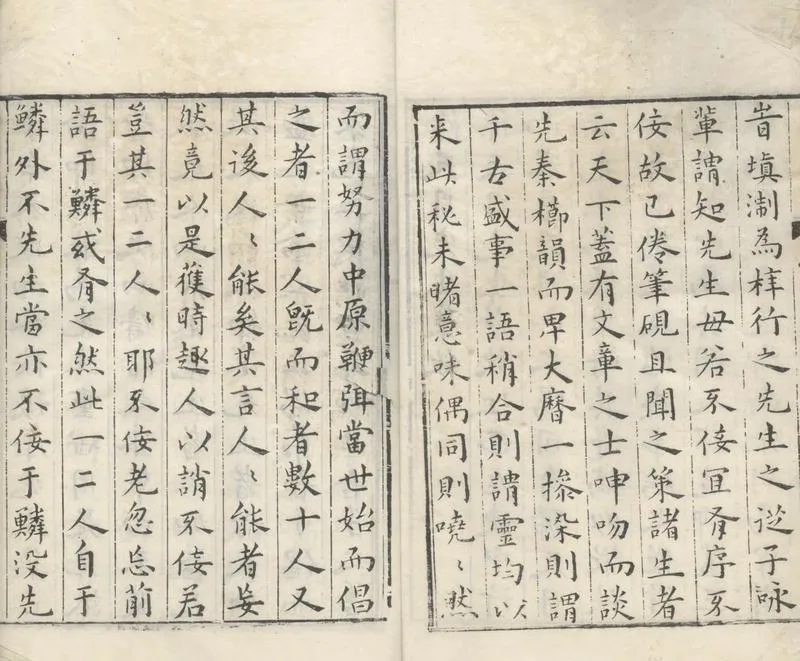 昔塡淛為梓行之先生之從子詠
輩謂知先生毋若不佞宜有序不
佞故已倦筆硯且聞之策諸生者
云天下蓋有文章之士呻吻而談
先秦櫛韻而卑大曆一摻染則謂
千古盛事一語稍合則謂靈均以
来此秘未睹意味偶同則嘵〻然
而謂努力中原鞭弭當世始而倡
之者一二人既而和者數十人又
其後人〻能矣其言人〻能者妄
然竟以是獲時趣人以誚不佞若
豈其一二人〻耶不佞老忽忘前
語于鱗或有之然此一二人自于
鱗外不先生當亦不佞于鱗没先